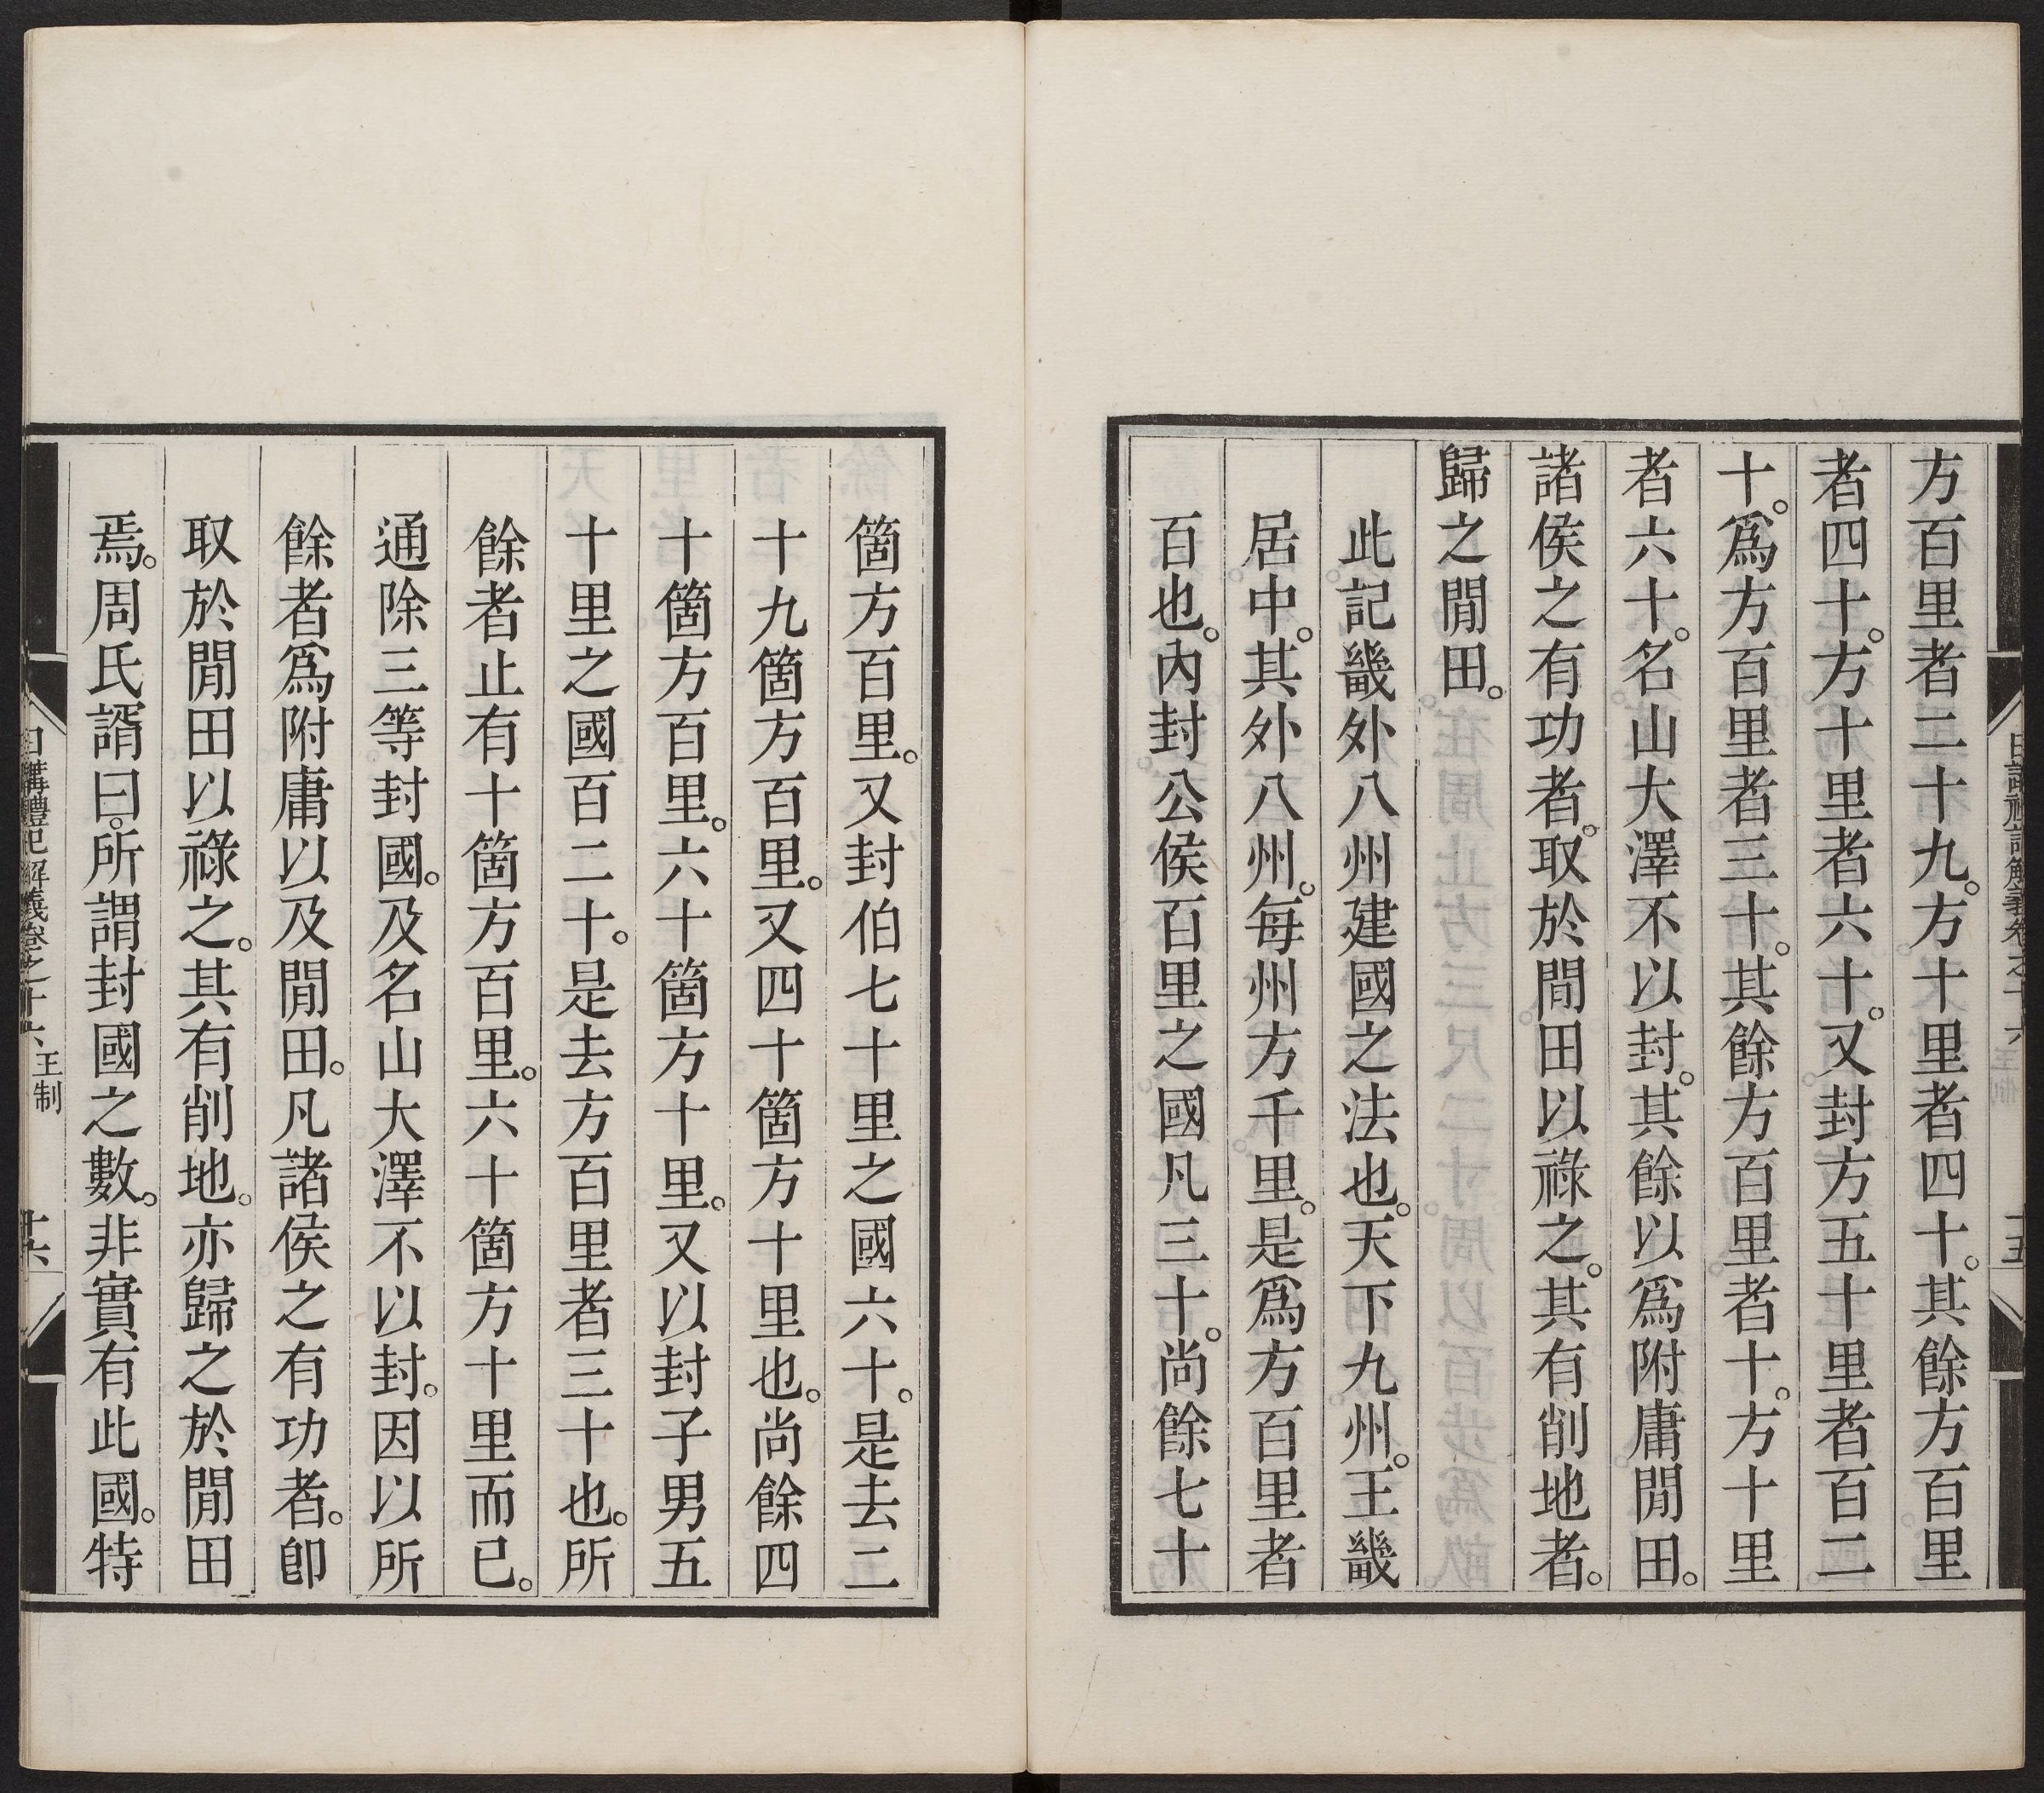 方百里者二十九。方十里者四十。其餘方百里
者四十。方十里者六十。又封方五十里者百二
十。爲方百里者三十。其餘方百里者十。方十里
者六十。名山大澤不以封。其餘以爲附庸閒田。
諸侯之有功者。取於閒田以祿之。其有削地者。
歸之閒田。
此記畿外八州建國之法也。天下九州。王畿
居中。其外八州。每州方千里。是爲方百里者
百也。內封公侯百里之國凡三十。尚餘七十
箇方百里。又封伯七十里之國六十。是去二
十九箇方百里。又四十箇方十里也。尚餘四
十箇方百里。六十箇方十里。又以封子男五
十里之國百二十。是去方百里者三十也。所
餘者止有十箇方百里。六十箇方十里而已。
通除三等封國。及名山大澤不以封。因以所
餘者爲附庸以及閒田。凡諸侯之有功者。卽
取於閒田以祿之。其有削地。亦歸之於閒田
焉。周氏諝曰。所謂封國之數。非實有此國。特
日講禮記解義卷之十六 王制 十六